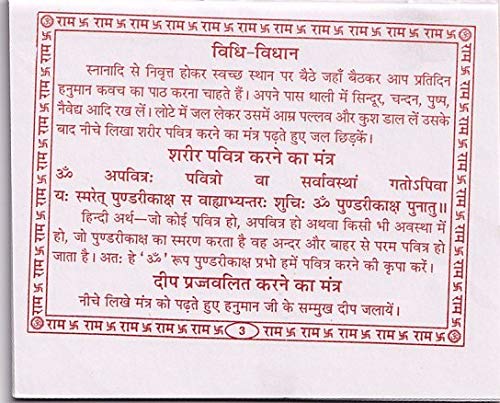 राम 卐 राम 卐 राम 卐 राम 卐 राम 卐 राम 卐 राम 卐 राम 卐 राम
विधि-विधान
स्नानादि से निवृत्त होकर स्वच्छ स्थान पर बैठे जहाँ बैठकर आप प्रतिदिन
हनुमान कवच का पाठ करना चाहते हैं। अपने पास थाली में सिन्दूर, चन्दन, पुष्प,
नैवेद्य आदि रख लें। लोटे में जल लेकर उसमें आम्र पल्लव और कुश डाल लें उसके
बाद नीचे लिखा शरीर पवित्र करने का मंत्र पढ़ते हुए जल छिड़कें।
शरीर पवित्र करने का मंत्र
ॐ अपवित्रः पवित्रो वा सर्वावस्थां गतोऽपिवा
यः स्मरेत् पुण्डरीकाक्ष स वाह्याभ्यन्तरः शुचिः ॐ पुण्डरीकाक्ष पुनातु॥
हिन्दी अर्थ—जो कोई पवित्र हो, अपवित्र हो अथवा किसी भी अवस्था में
हो, जो पुण्डरीकाक्ष का स्मरण करता है वह अन्दर और बाहर से परम पवित्र हो
जाता है। अतः हे ‘ॐ’ रूप पुण्डरीकाक्ष प्रभो हमें पवित्र करने की कृपा करें।
दीप प्रज्जवलित करने का मंत्र
नीचे लिखे मंत्र को पढ़ते हुए हनुमान जी के सम्मुख दीप जलायें।
राम 卐 राम 卐 राम 卐 राम 卐 राम 卐 3 卐 राम 卐 राम 卐 राम 卐 राम 卐 राम